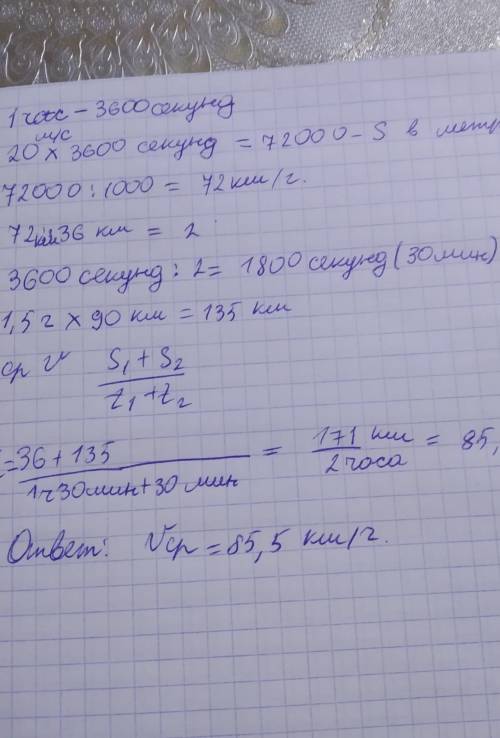 1 час - 3600 секунд
20 м/с × 3600 секунд = 72000 - S в метр
72000 : 1000 = 72 км/г.
72 км : 36 км = 2
3600 секунд : 2 = 1800 секунд (30 мин)
1,5 г × 90 км = 135 км
ср V S₁ + S₂ / t₁ + t₂
= 36 + 135 / 1ч 30 мин + 30 мин = 171 км / 2 часа = 85,
Ответ: Vср = 85,5 км/г.